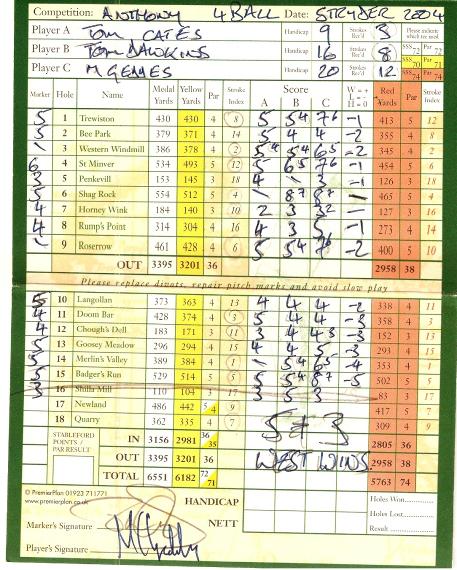 Competition: ANTHONY 4 BALL Date: STRYDER 2004
Player A Tom CATES Handicap 9 Strokes Rec'd 3 Please indicate which tee used
Player B Tom DAWKINS Handicap 16 Strokes Rec'd 8 SSS 72 Par 72
SSS 70 Par 71
Player C M GEMES Handicap 20 Strokes Rec'd 12 SSS 74 Par 74
Marker Hole Name Medal Yards Yellow Yards Par Stroke Index Score A B C W = + L = - H = 0 Red Yards Par Stroke Index
5 1 Trewiston 430 430 4 8 5 5 4 7 6 -1 413 5 12
5 2 Bee Park 379 371 4 14 5 4 4 -2 355 4 8
3 Western Windmill 386 378 4 2 5 4 5 4 6 5 -2 345 4 2
6 4 St Minver 534 493 5 12 5 6 5 7 6 -1 454 5 6
3 5 Penkevill 153 145 3 18 4 3 -1 126 3 18
5 6 Shag Rock 554 512 5 4 8 7 8 7 465 5 4
4 7 Horney Wink 184 140 3 10 2 3 3 2 127 3 16
4 8 Rump's Point 314 304 4 16 4 3 5 -1 273 4 14
9 Roserrow 461 428 4 6 5 5 4 7 6 -2 400 5 10
OUT 3395 3201 36 2958 38
Please replace divots, repair pitch marks and avoid slow play
5 10 Langollan 373 363 4 13 4 4 4 -2 338 4 11
4 11 Doom Bar 428 374 4 3 5 4 4 -3 358 4 3
4 12 Chough's Dell 183 171 3 11 3 4 4 3 -3 152 3 13
5 13 Goosey Meadow 296 294 4 15 4 4 5 -3 293 4 15
5 14 Merlin's Valley 389 384 4 1 5 4 6 5 -4 353 4 1
5 15 Badger's Run 529 514 5 5 5 5 4 8 7 -5 502 5 5
3 16 Shilla Mill 110 104 3 17 3 5 3 83 3 17
17 Newland 486 442 5 4 9 417 5 7
18 Quarry 362 335 4 7 309 4 9
5 + 3
STABLEFORD POINTS / PAR RESULT IN 3156 2981 36 35 2805 36
OUT 3395 3201 36 WEST WINS. 2958 38
TOTAL 6551 6182 72 71 5763 74
© PremierPlan 01923 711771
www.premierplan.co.uk HANDICAP Holes Won
Marker's Signature NETT Holes Lost
Result
Player's Signature